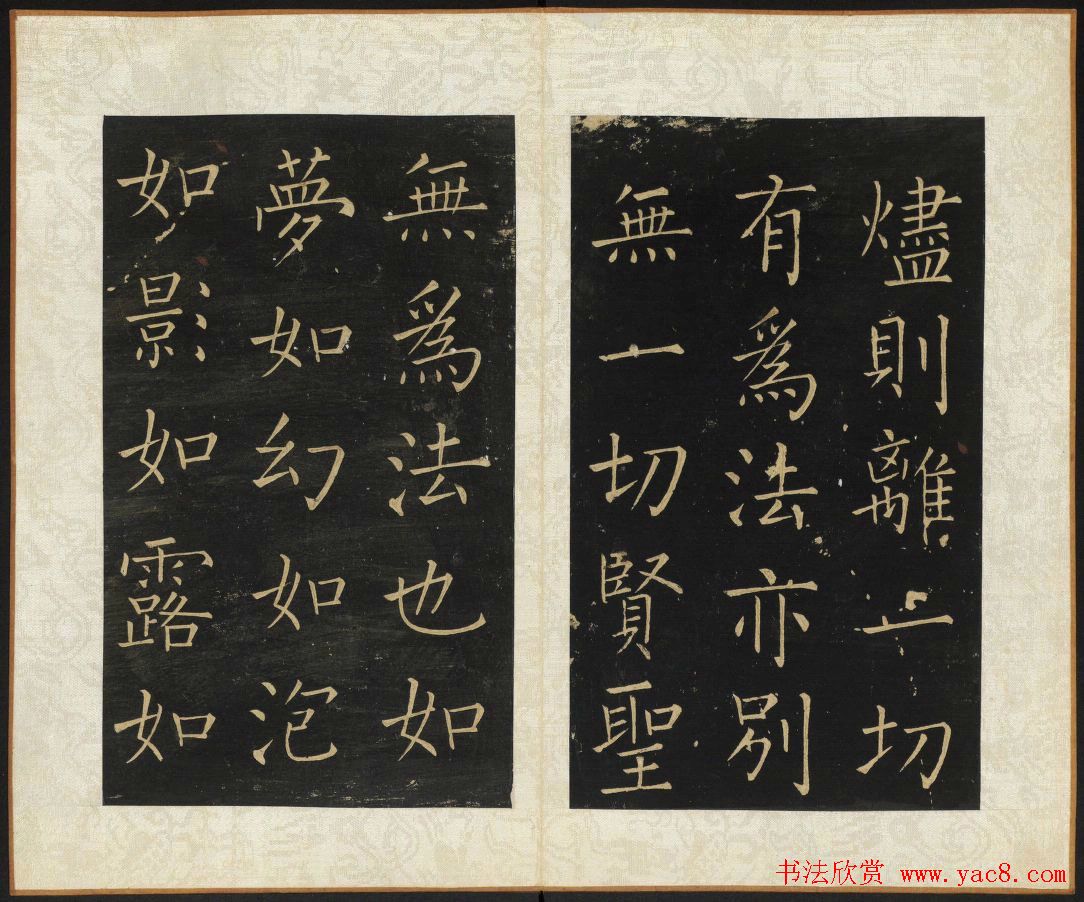 燼則離一切
有爲法亦別
無一切賢聖
無爲法也如
夢如幻如泡
如影如露如
书法欣赏 www.yac8.com